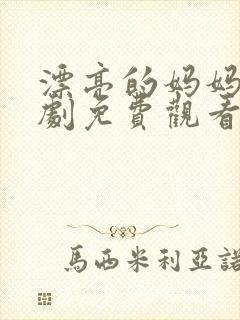 漂亮的妈妈
劇免費觀看
馬西米利亞諾